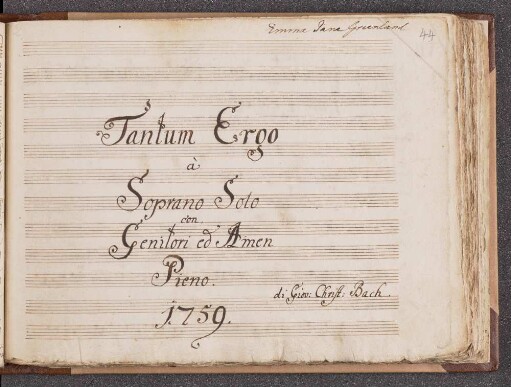 Emma Jane Greenland
44
Tantum Ergo
à
Soprano Solo
con
Genitori ed Amen
Pieno.
di Giov: Christ: Bach
1759.